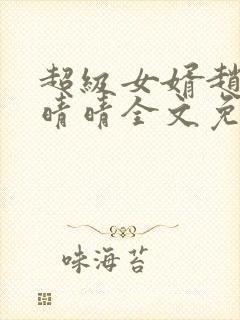 超级女婿趙
晴晴全文免
味海苔